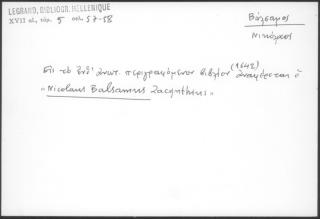 LEGRAND, BIBLIOGR. HELLENIQUE
XVII αἰ, τόμ. 5 σελ. 57-58
Βάλσαμος
Νικόλαος
Εἰς τὸ ὑπ' ἀνωτ. περιγραφόμενον βιβλίον (1642) ἀναφέρεται ὁ
"Nicolaus Balsamus Zacynthius"